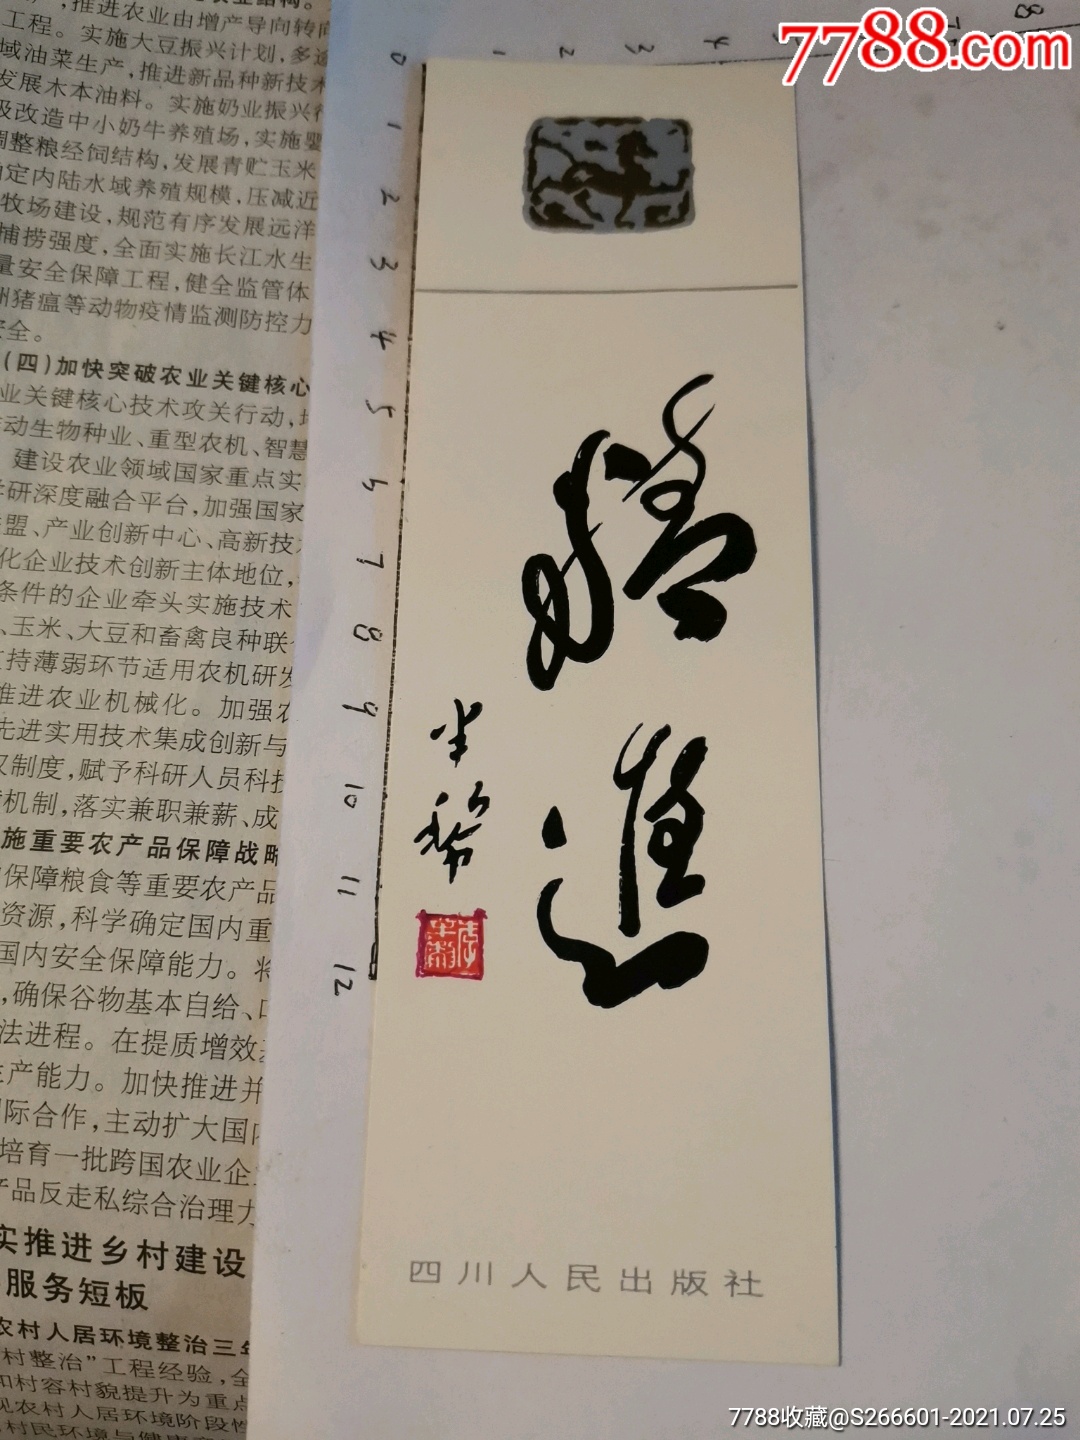 7788.com
推进农业由增产导向转向
工程。实施大豆振兴计划,多途
域油菜生产,推进新品种新技术
发展木本油料。实施奶业振兴行
级改造中小奶牛养殖场,实施婴
调整粮经饲结构,发展青贮玉米
定内陆水域养殖规模,压减近
牧场建设,规范有序发展远洋
捕捞强度,全面实施长江水生
量安全保障工程,健全监管体
猪瘟等动物疫情监测防控力
安全。
(四)加快突破农业关键核心
业关键核心技术攻关行动,培
动生物种业、重型农机、智慧
建设农业领域国家重点实
学研深度融合平台,加强国家
盟、产业创新中心、高新技术
化企业技术创新主体地位,
条件的企业牵头实施技术
、玉米、大豆和畜禽良种联合
支持薄弱环节适用农机研发
推进农业机械化。加强农
先进实用技术集成创新与
权制度,赋予科研人员科技
机制,落实兼职兼薪、成
施重要农产品保障战略
保障粮食等重要农产品
资源,科学确定国内重
国内安全保障能力。将
,确保谷物基本自给、口
法进程。在提质增效
生产能力。加快推进并
国际合作,主动扩大国内
培育一批跨国农业企业
产品反走私综合治理力
实推进乡村建设
服务短板
农村人居环境整治三年
村整治”工程经验,全
和村容村貌提升为重点
现农村人居环境阶段性
0 1 2 3 4
0
1
2
3
4
5
6
7
8
9
10
11
12
進
半黎
李半黎
四川人民出版社
7788收藏@S266601-2021.07.25